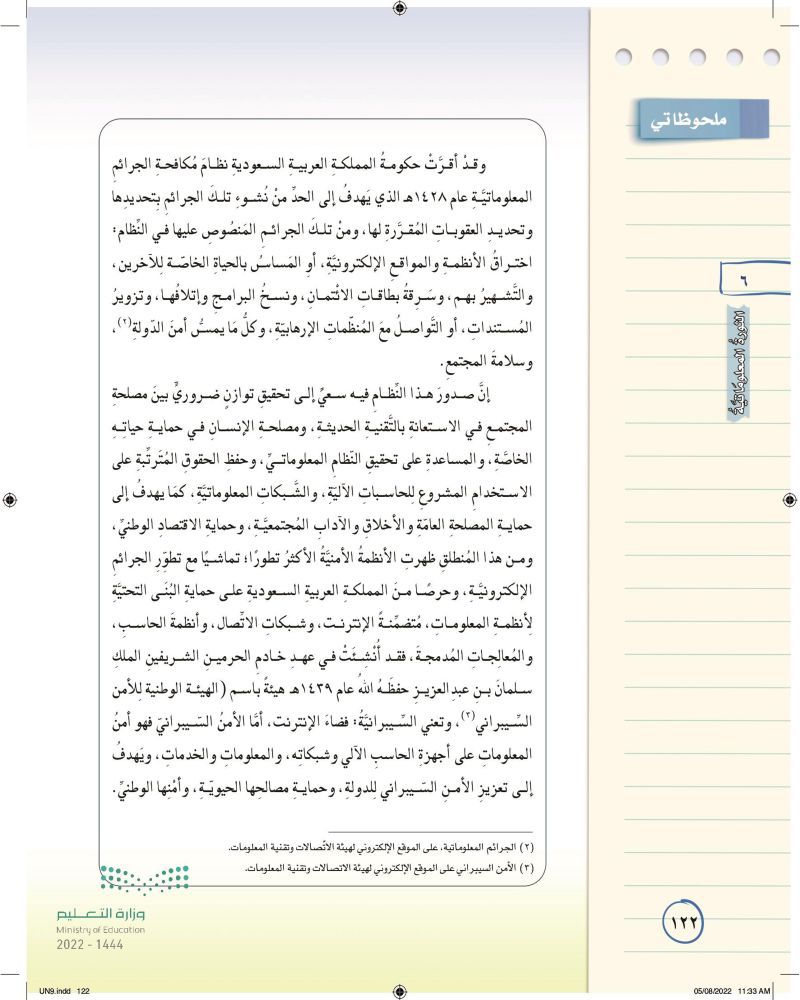 ملحوظاتي
٦
الثورةُ المعلوماتيَّةُ
وقـدْ أقـرَّتْ حكومـةُ المملكـةِ العربيـةِ السـعوديةِ نظـامَ مُكافحـةِ الجرائمِ
المعلوماتيَّـةِ عام ١٤٢٨هـ الذي يَهدفُ إلى الحدِّ منْ نُشـوءِ تلـكَ الجرائمِ بتحديدِها
وتحديـدِ العقوبـاتِ المُقـرَّرةِ لها، ومنْ تلـكَ الجرائـمِ المَنصُوصِ عليها فـي النِّظامِ:
اختـراقُ الأنظمـةِ والمواقـعِ الإلكترونيَّةِ، أوِ المَسـاسُ بالحياةِ الخاصّـةِ للآخرينِ،
والتَّشـهيرُ بهـم، وسَـرِقةُ بطاقـاتِ الائْتمـانِ، ونسـخُ البرامـجِ وإتلافُهـا، وتزويرُ
المُسـتنداتِ، أو التَّواصـلُ معَ المُنظّمـاتِ الإرهابيّةِ، وكلُّ مَا يمسُّ أمنَ الدّولةِ(٢)،
وسلامةَ المجتمعِ.
إنَّ صـدورَ هـذا النِّظـامِ فيـه سـعيٌ إلـى تحقيقِ توازنٍ ضـروريٍّ بينَ مصلحةِ
المجتمـعِ فـي الاسـتعانةِ بالتَّقنيـةِ الحديثـةِ، ومصلحـةِ الإنسـانِ فـي حمايـةِ حياتِـهِ
الخاصَّةِ، والمساعدةِ على تحقيقِ النّظامِ المعلوماتـيِّ، وحفظِ الحقوقِ المُتَرتِّبةِ على
الاسـتخدامِ المشـروعِ لِلحاسـباتِ الآليّةِ، والشَّـبكاتِ المعلوماتيَّةِ، كمَا يهدفُ إلى
حمايـةِ المصلحةِ العامّةِ والأخلاقِ والآدابِ المُجتمعيَّـةِ، وحمايةِ الاقتصادِ الوطنيِّ،
ومـن هذا المُنطلقِ ظهرتِ الأنظمةُ الأمنيَّةُ الأكثرُ تطورًا؛ تماشـيًا مع تطوّرِ الجرائمِ
الإلكترونيَّـةِ، وحرصًـا مـنَ المملكـةِ العربيةِ السـعوديةِ علـى حمايةِ البُنَـى التحتيَّةِ
لأنظمـةِ المعلومـاتِ، مُتضمِّنـةً الإنترنـت، وشـبكاتِ الاتِّصالِ، وأنظمةَ الحاسـبِ،
والمُعالجـاتِ المُدمجـةَ، فقـد أُنْشِـئَتْ فـي عهـدِ خـادمِ الحرميـنِ الشـريفينِ الملكِ
سـلمانَ بـنِ عبدِالعزيـزِ حفظَـهُ اللهُ عام ١٤٣٩هـ هيئةً باسـم (الهيئـة الوطنية للأمنِ
السِّـيبراني(٣)، وتعني السِّـيبرانيَّةُ: فضاءَ الإنترنت، أمَّا الأمنُ السَّـيبرانيّ فهو أمنُ
المعلوماتِ على أجهزةِ الحاسبِ الآلي وشبكاتِه، والمعلوماتِ والخدماتِ، ويَهدفُ
إلـى تعزيزِ الأمـنِ السَّـيبراني لِلدولةِ، وحمايـةِ مصالحِها الحيويّـةِ، وأمْنِها الوطنيِّ.
(٢) الجرائم المعلوماتية، على الموقع الإلكتروني لهيئة الاتّصالات وتقنية المعلومات.
(٣) الأمن السيبراني على الموقع الإلكتروني لهيئة الاتصالات وتقنية المعلومات.
وزارة التعـليم
Ministry of Education
2022 - 1444
١٢٢
UN9.indd 122
05/08/2022 11:33 AM